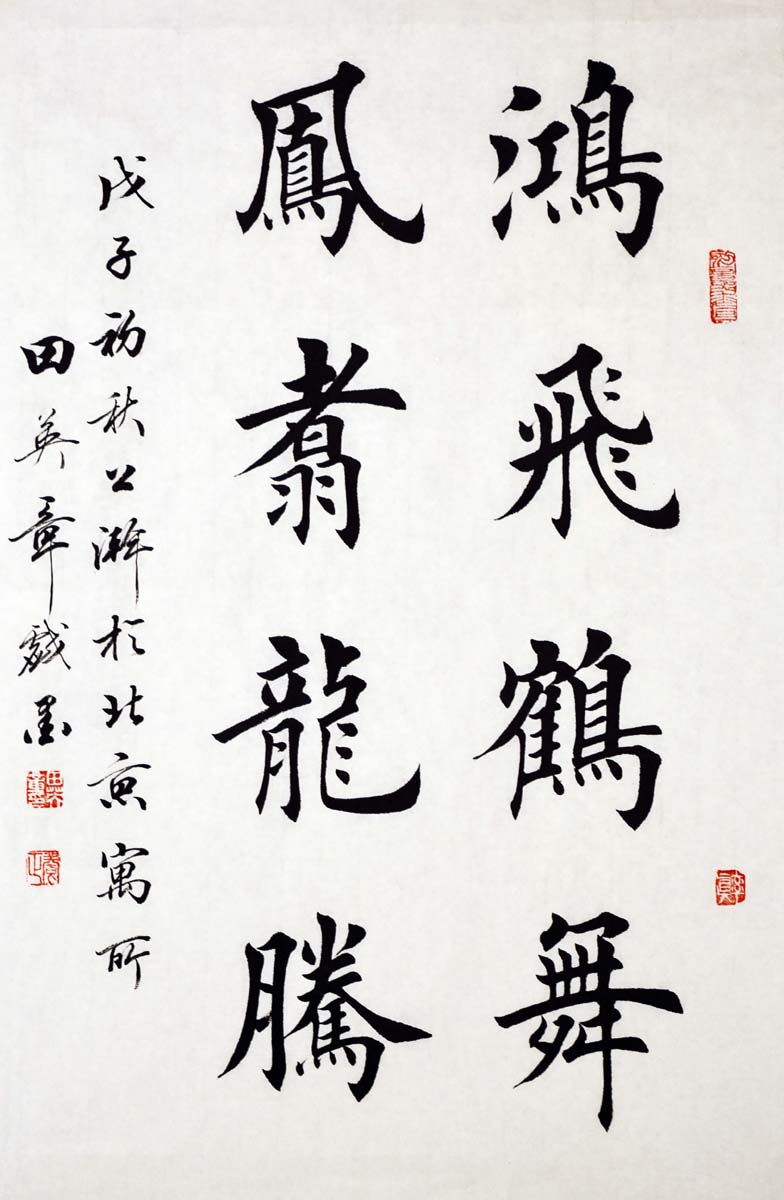 鴻飛鶴舞
鳳翥龍騰
戊子初秋公澣於北京寓所
田英章戲墨